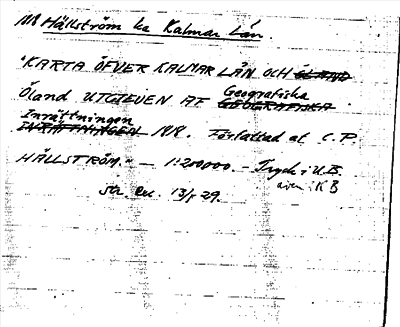 Hällström ka Kalmar Län.
"KARTA ÖFVER KALMAR LÄN OCH ÖLAND
Geografiska
Öland UTGIFVEN AF GEOGRAFISKA
Inrättningen
INRÄTTNINGEN 1818. Författad af C.P.
HÄLLSTRÖM." — 1:200000. — Tryck i U.B.
även i KB
13/1 29.